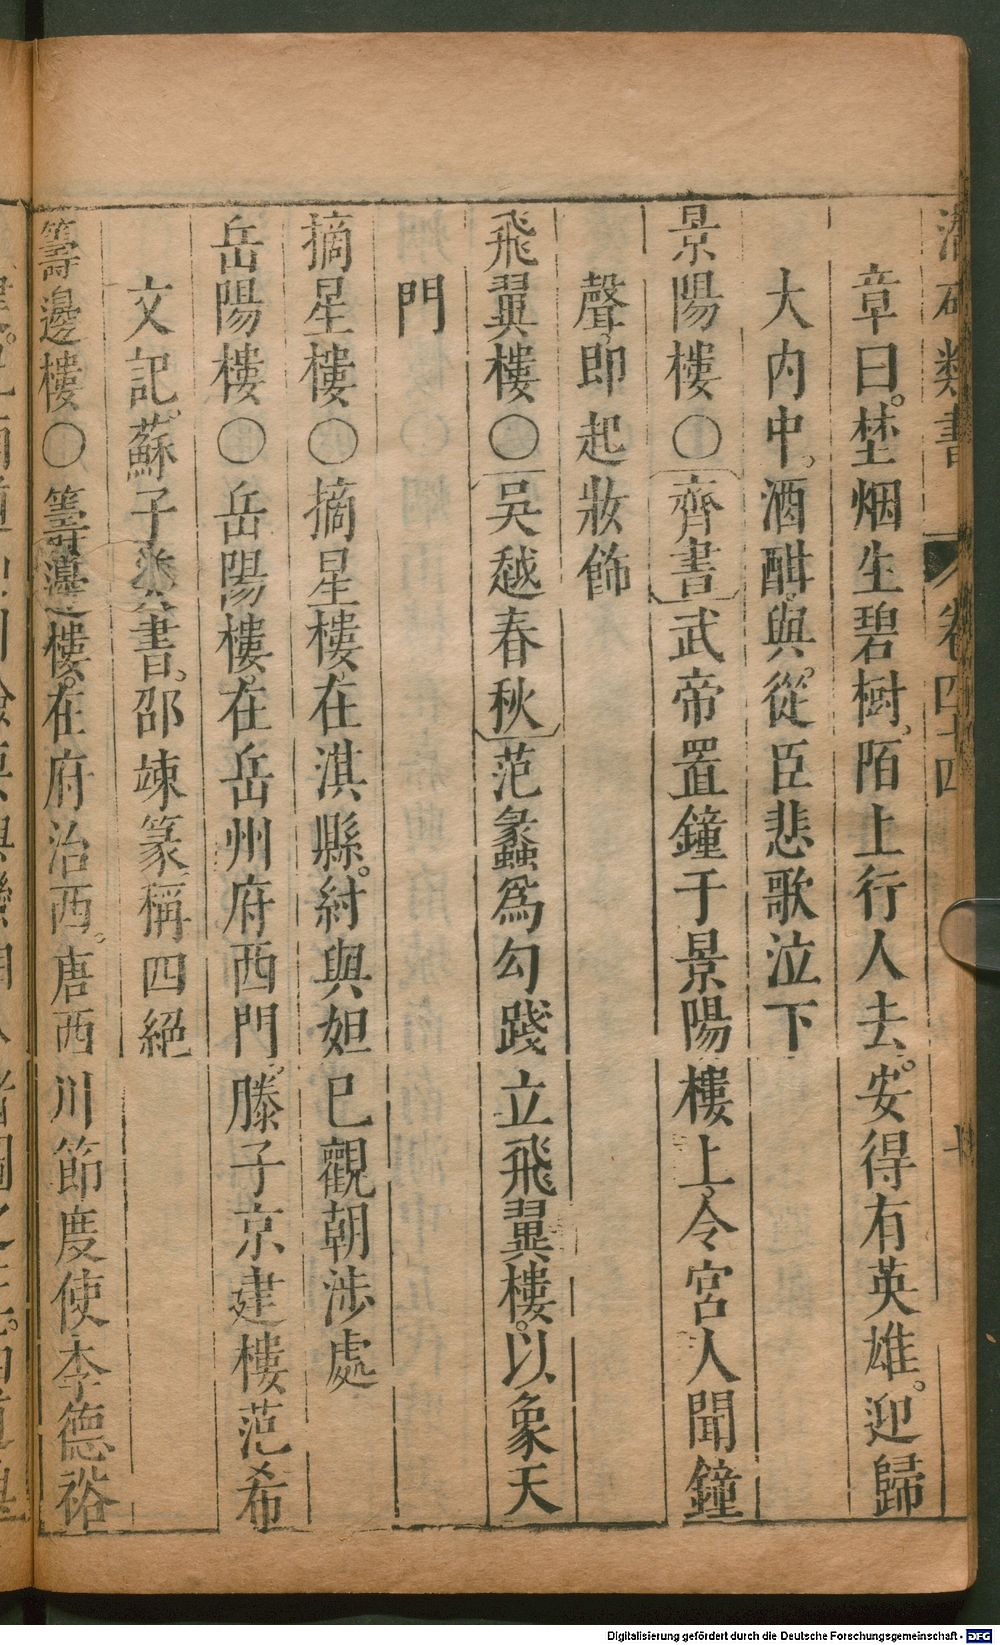 潛確類書 卷四十四
章曰。埜烟生碧樹、陌上行人去。安得有英雄。迎歸
大内中。酒酣與從臣悲歌泣下
景陽樓〇齊書武帝置鐘于景陽樓上、令宮人聞鐘
聲、即起妝飾
飛翼樓〇吳越春秋范蠡爲勾踐立飛翼樓。以象天
門
摘星樓〇摘星樓、在淇縣。紂與妲己觀朝涉處
岳陽樓〇岳陽樓。在岳州府西門。滕子京建樓范希
文記。蘇子美書。邵竦篆、稱四絕
籌邊樓〇籌邊樓。在府治西。唐西川節度使李德裕
Digitalisierung gefördert durch die Deutsche Forschungsgemeinschaft - DFG